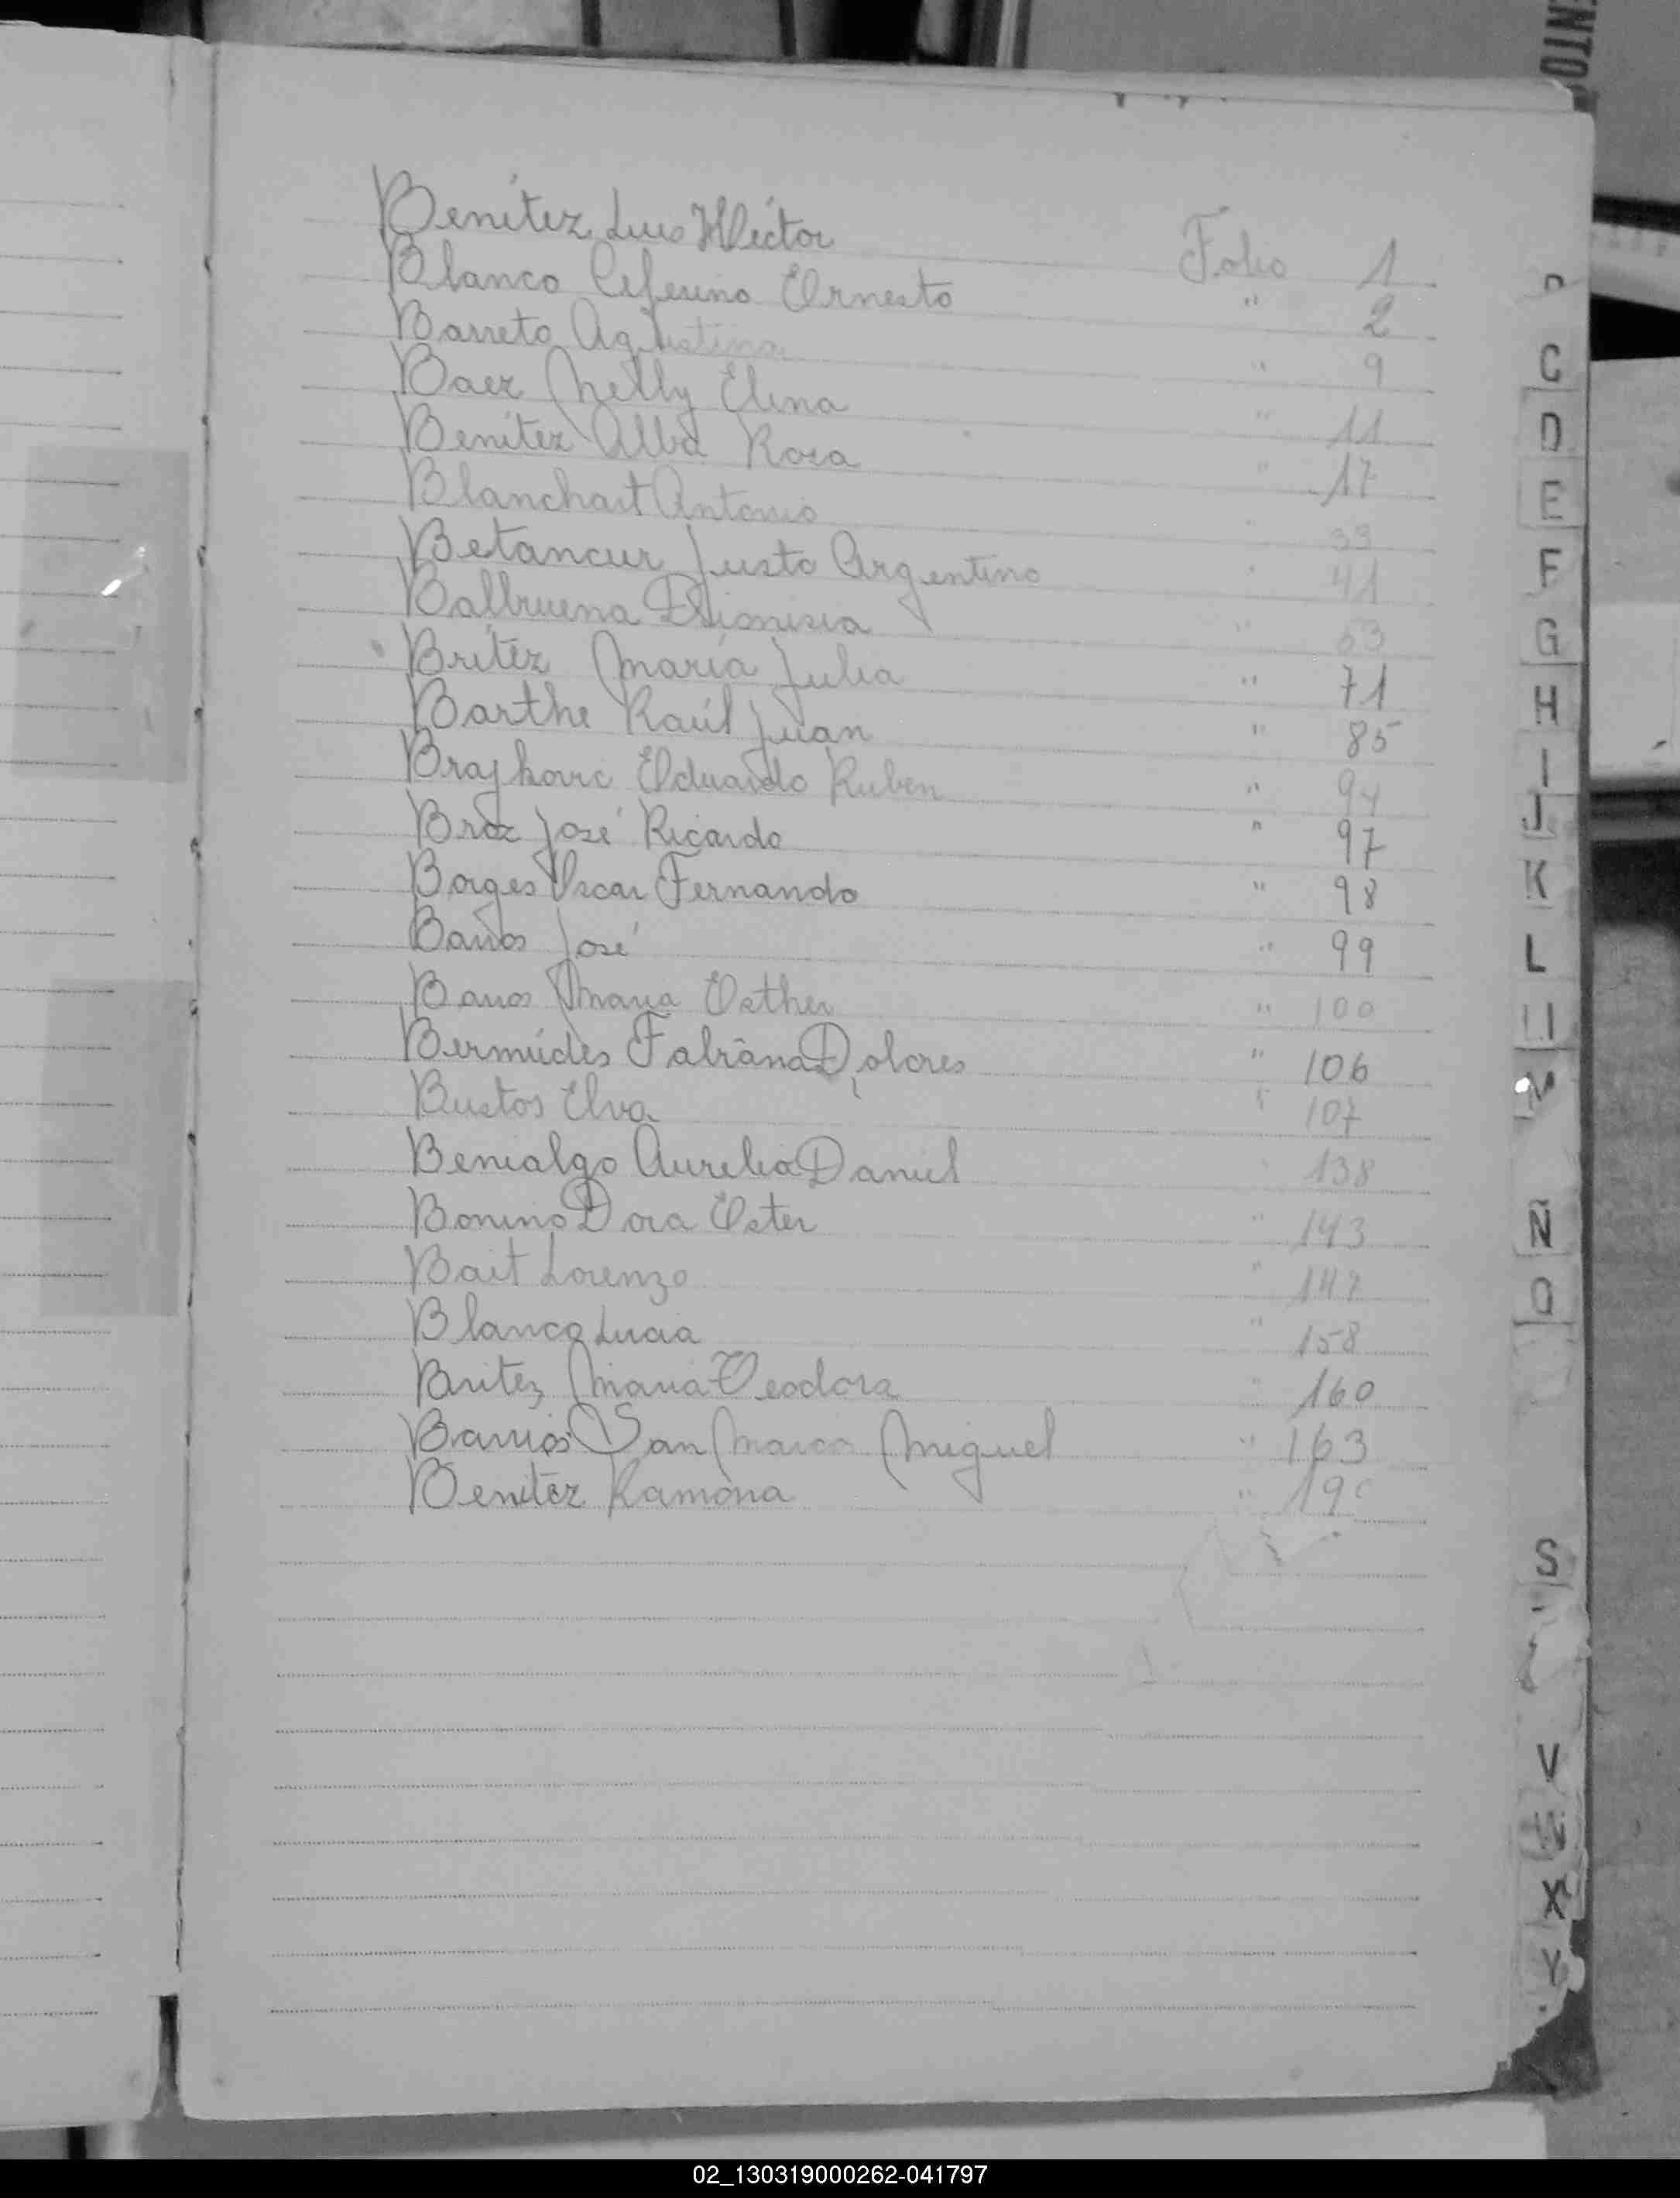 ENTO
Benítez Luis Héctor Folio 1
Blanco Ceferino Ernesto " 2
Barreto Agustina " 9
Baez Nelly Elena " 11
Benítez Alba Rosa " 17
Blanchart Antonio " 39
Betancur Justo Argentino " 41
Balbuena Dionisia " 53
Britéz María Julia " 71
Barthe Raúl Juan " 85
Brajkovic Eduardo Ruben " 94
Braz José Ricardo " 97
Borges Oscar Fernando " 98
Barros José " 99
Barros Maria Esther " 100
Bermúdes Fabiana Dolores " 106
Bustos Elva " 107
Benialgo Aurelia Daniel " 138
Bonino Dora Ester " 143
Bait Lorenzo " 147
Blanco Lucia " 158
Britez Maria Teodora " 160
Barrios San Marco Miguel " 163
Benitéz Ramona "
C
D
E
F
G
H
I
J
K
L
LL
M
Ñ
O
S
V
W
X
Y
02_130319000262-041797